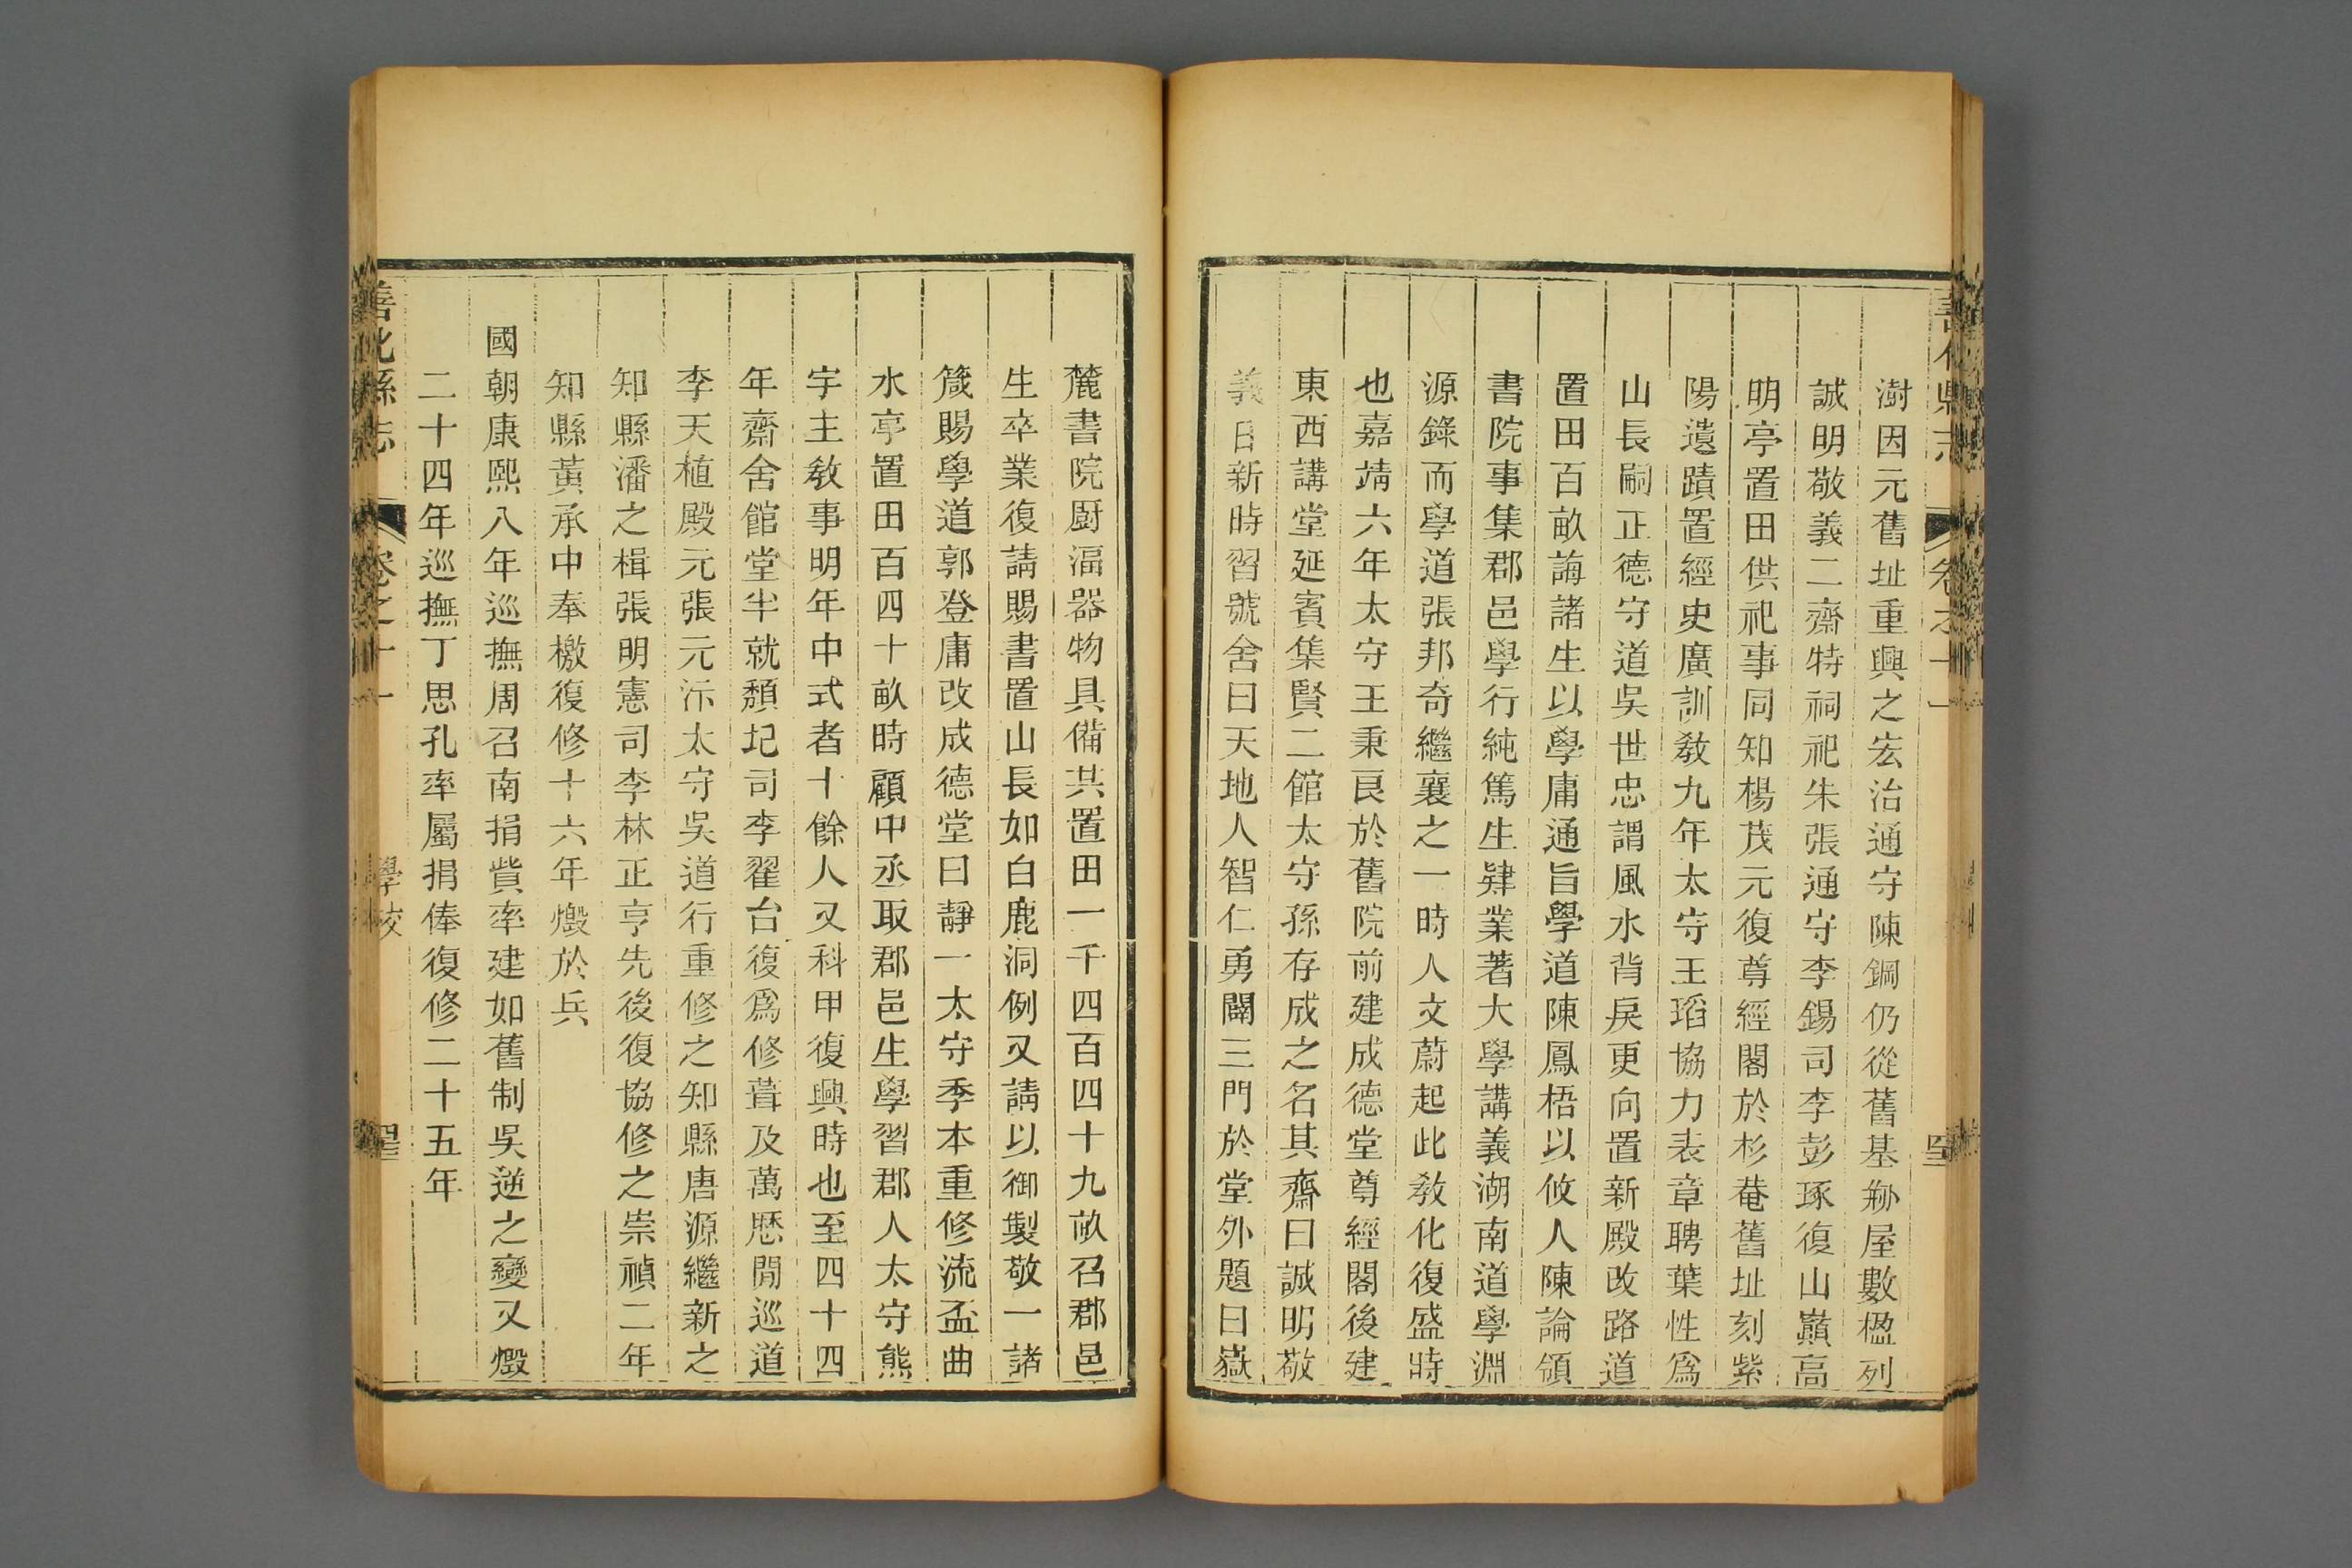 善化縣志 卷之十一
澍因元舊址重興之宏治通守陳鋼仍從舊基剏屋數楹列
誠明敬義二齋特祠祀朱張通守李錫司李彭琢復山巔高
明亭置田供祀事同知楊茂元復尊經閣於杉菴舊址刻紫
陽遺蹟置經史廣訓敎九年太守王瑫協力表章聘葉性爲
山長嗣正德守道吳世忠謂風水背戾更向置新殿改路道
置田百畝誨諸生以學庸通旨學道陳鳳梧以攸人陳論領
書院事集郡邑學行純篤生肄業著大學講義湖南道學淵
源錄而學道張邦奇繼襄之一時人文蔚起此敎化復盛時
也嘉靖六年太守王秉良於舊院前建成德堂尊經閣後建
東西講堂延賓集賢二館太守孫存成之名其齋曰誠明敬
義日新時習號舍曰天地人智仁勇闢三門於堂外題曰嶽
麓書院厨湢器物具備共置田一千四百四十九畝召郡邑
生卒業復請賜書置山長如白鹿洞例又請以御製敬一諸
箴賜學道郭登庸改成德堂曰靜一太守季本重修流盃曲
水亭置田百四十畝時顧中丞取郡邑生學習郡人太守熊
宇主敎事明年中式者十餘人又科甲復興時也至四十四
年齋舍館堂半就頽圮司李翟台復爲修葺及萬厯閒巡道
李天植殿元張元忭太守吳道行重修之知縣唐源繼新之
知縣潘之楫張明憲司李林正亨先後復協修之崇禎二年
知縣黃承中奉檄復修十六年燬於兵
國朝康熙八年巡撫周召南捐貲率建如舊制吳逆之變又燬
二十四年巡撫丁思孔率屬捐俸復修二十五年
善化縣志 卷之十一 學校